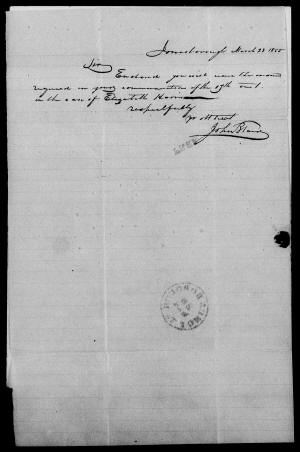 Jonesborough March 23 1855
Sir
Enclosed you will
required in your communication of the 17th inst
in the case of Elizabeth
respectfully
yr obt svt
John Blair